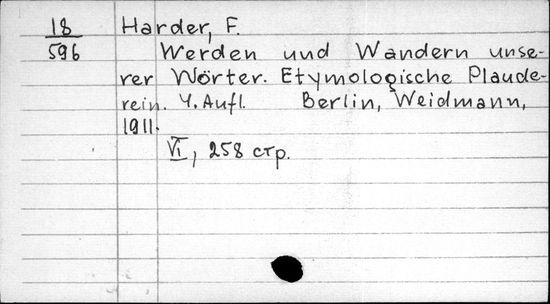 18
596
Harder, F.
Werden und Wandern unse-
rer Wörter. Etymologische Plaude-
rein. 4. Aufl. Berlin, Weidmann,
1911.
VI, 258 стр.